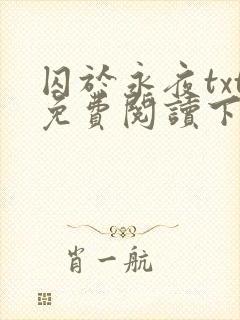 囚於永夜txt
免費閱讀下
肖一航